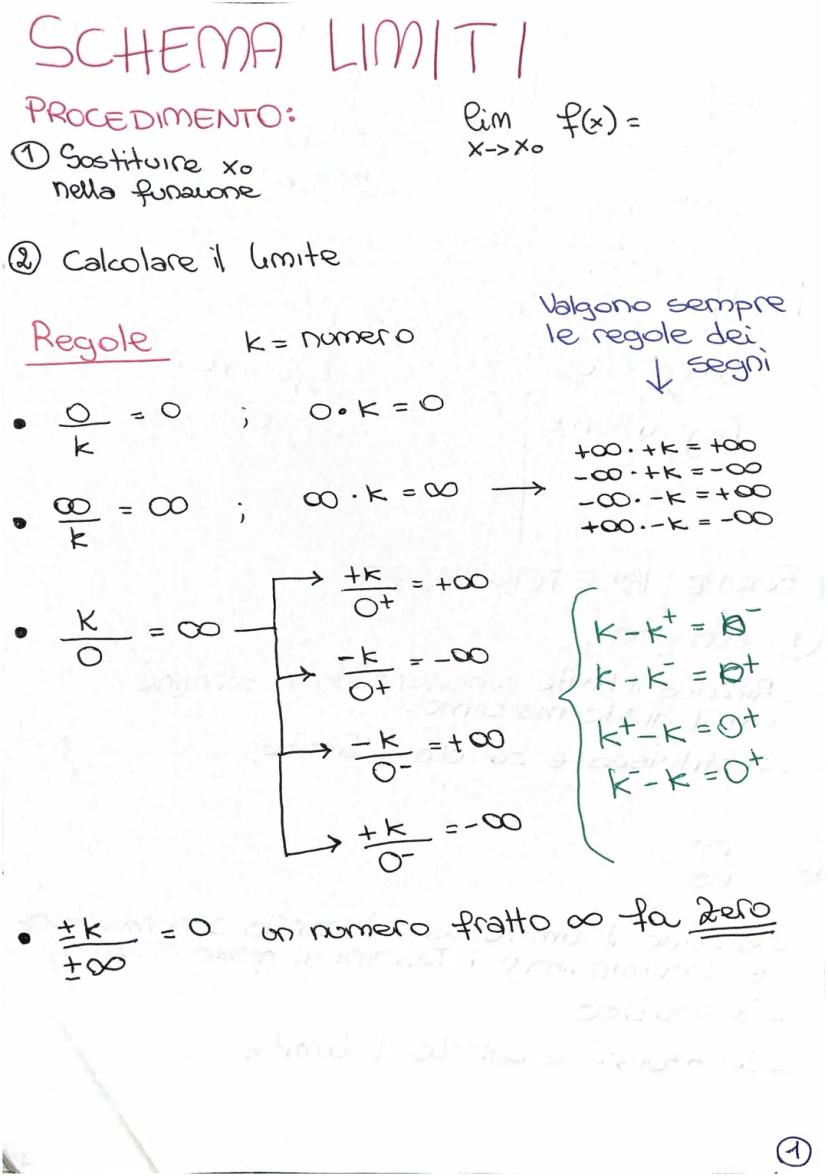 SCHEMA LIMITI
PROCEDIMENTO:
lim f(x) =
x->x₀
① Sostituire x₀
nella funzione
② Calcolare il limite
Valgono sempre
le regole dei
segni
↓
Regole k = numero
• 0/k = 0 ; 0•k = 0
• ∞/k = ∞ ; ∞·k = ∞ →
+∞·+k = +∞
-∞·+k = -∞
-∞·-k = +∞
+∞·-k = -∞
• k/0 = ∞
→ +k/0⁺ = +∞
→ -k/0⁺ = -∞
→ -k/0⁻ = +∞
→ +k/0⁻ = -∞
k-k⁺ = 0⁻
k-k⁻ = 0⁺
k⁺-k = 0⁺
k⁻-k = 0⁺
• ±k/±∞ = 0 un numero fratto ∞ fa zero
①